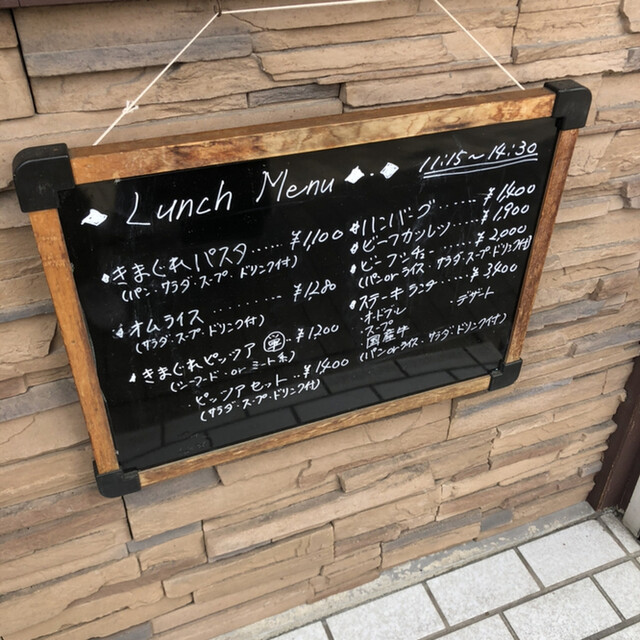 Lunch Menu
11:15〜14:30
きまぐれパスタ......¥1,100
(パン・サラダ・スープ・ドリンク付)
オムライス..........¥1,280
(サラダ・スープ・ドリンク付)
きまぐれピッツア 単..¥1,200
(シーフード or ミート系)
ピッツアセット..¥1400
(サラダ・スープ・ドリンク付)
ハンバーグ......¥1400
ビーフカツレツ....¥1,900
ビーフシチュー.....¥2,000
(パン or ライス・サラダ・スープ・ドリンク付)
ステーキランチ.....¥3,400
オードブル デザート
スープ
国産牛
(パン or ライス・サラダ・ドリンク付)